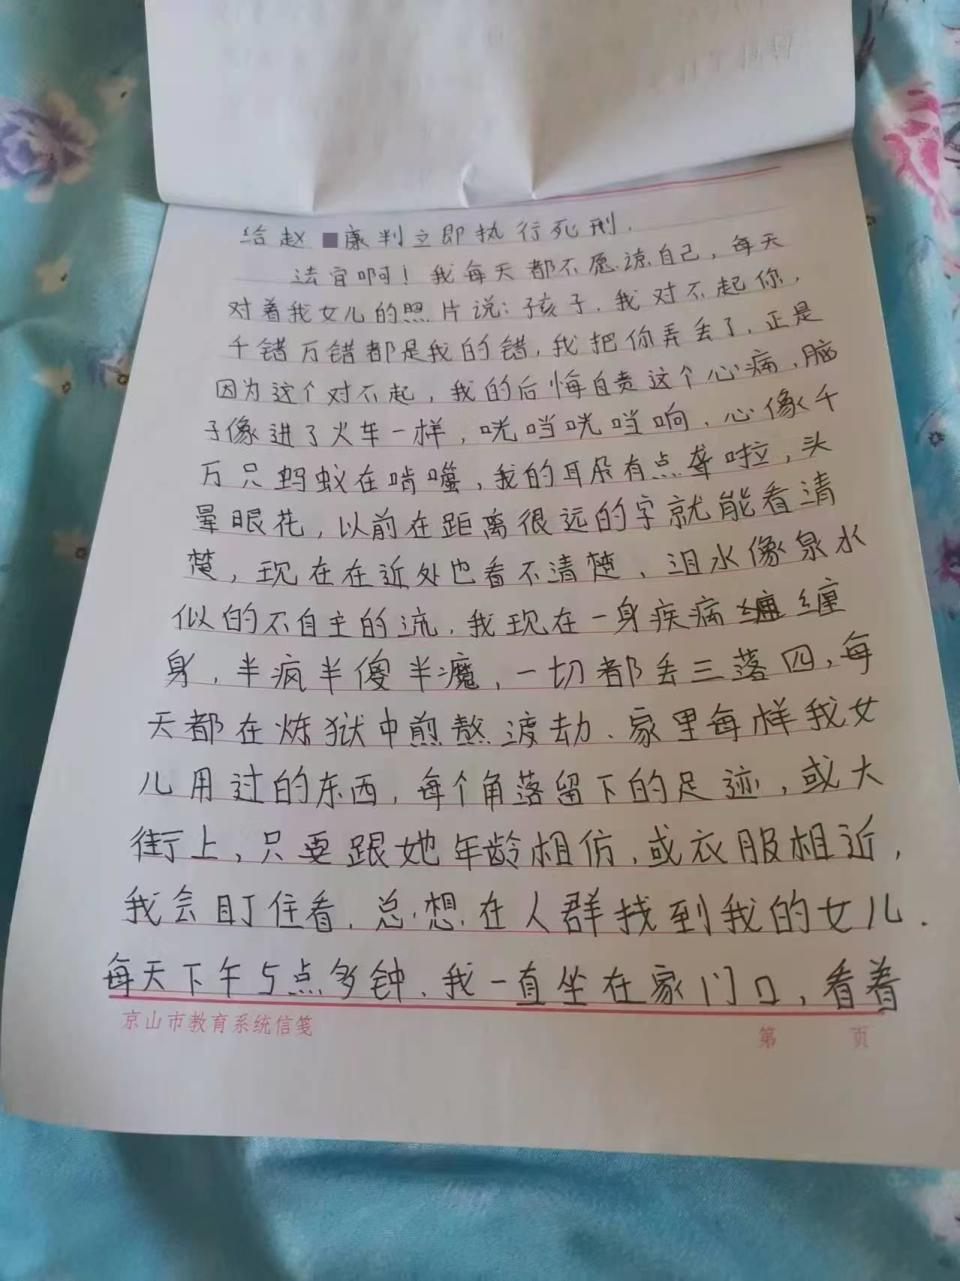 给赵■康判立即执行死刑.
法官啊！我每天都不愿谅自己，每天
对着我女儿的照片说：孩子.我对不起你，
千错万错都是我的错，我把你弄丢了.正是
因为这个对不起，我的后悔自责这个心痛、脑
子像进了火车一样，咣当咣当响，心像千
万只蚂蚁在啃噬，我的耳朵有点聋啦，头
晕眼花，以前在距离很远的字就能看清
楚，现在在近处也看不清楚、泪水像泉水
似的不自主的流，我现在一身疾病缠
身，半疯半傻半魔，一切都丢三落四，每
天都在炼狱中煎熬渡劫、家里每样我女
儿用过的东西，每个角落留下的足迹，或大
街上，只要跟她年龄相仿，或衣服相近，
我会盯住看.总想在人群找到我的女儿.
每天下午5点多钟、我一直坐在家门口，看着
京山市教育系统信笺
第 页